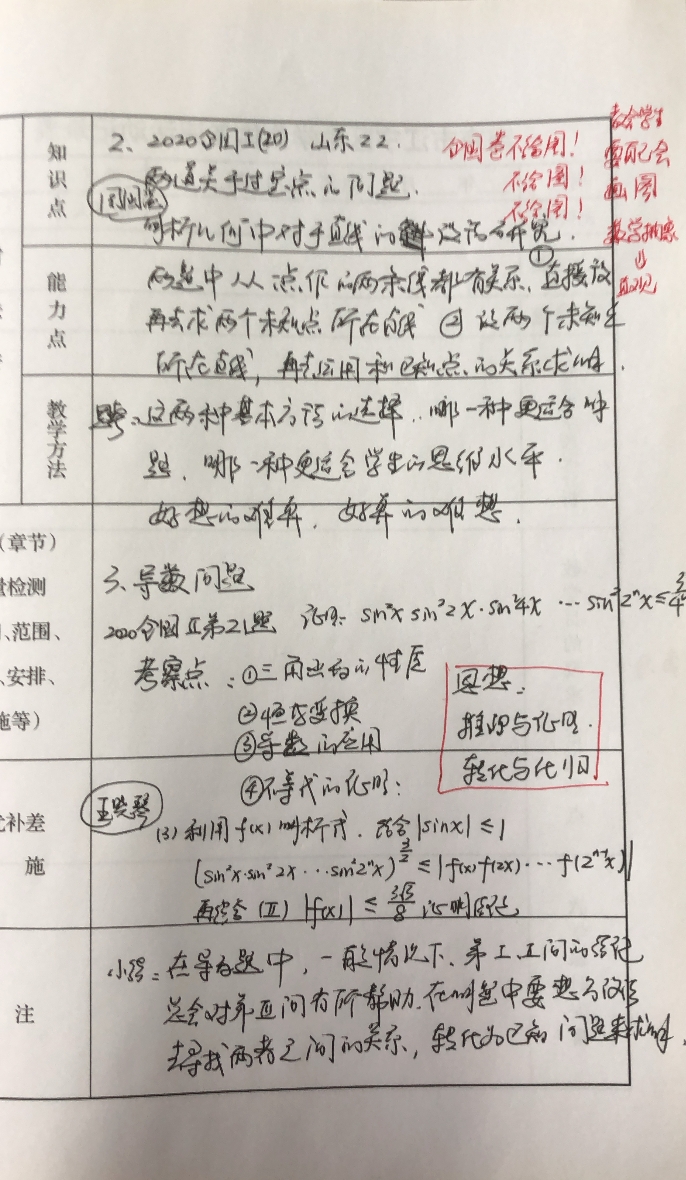 知识点
2、2020全国I(20) 山东22.
两道关于过定点的问题.
解析几何中对于直线的设法研究.
全国卷不给图!
不给图!
不给图!
教会学生
要自己会
画图
数学抽象
⇓
直观
能力点
两题中从一点作的两条线都有关系, ①直接设
再去求两个未知点所在直线 ②设两个未知点
所在直线, 再去运用和已知点的关系求解.
教学方法
思考: 这两种基本方法的选择. 哪一种更适合解
题. 哪一种更适合学生的思维水平.
好想的难算, 好算的难想.
(章节)
检测
、范围、
、安排、
施等)
3、导数问题
2020全国II第21题 证明: sin²x sin²2x·sin²4x ⋯ sin²2ⁿx ≤ 3ⁿ/4ⁿ
考察点: ①三角函数的性质
②恒等变换
③导数的应用
④不等式的证明:
思想:
推理与证明.
转化与化归
补差
施
王晓琴
(3) 利用f(x)解析式. 结合|sinx| ≤ 1
(sin²x·sin²2x⋯sin²2ⁿx)^(3/2) ≤ |f(x)f(2x)⋯f(2ⁿ⁻¹x)|
再结合(II) |f(x)| ≤ 3√3/8 证明结论
注
小结: 在导数题中, 一般情况下, 第I、II问的结论
总会对第III问有所帮助. 在解题中要想方设法
去寻找两者之间的关系, 转化为已知问题来求解.